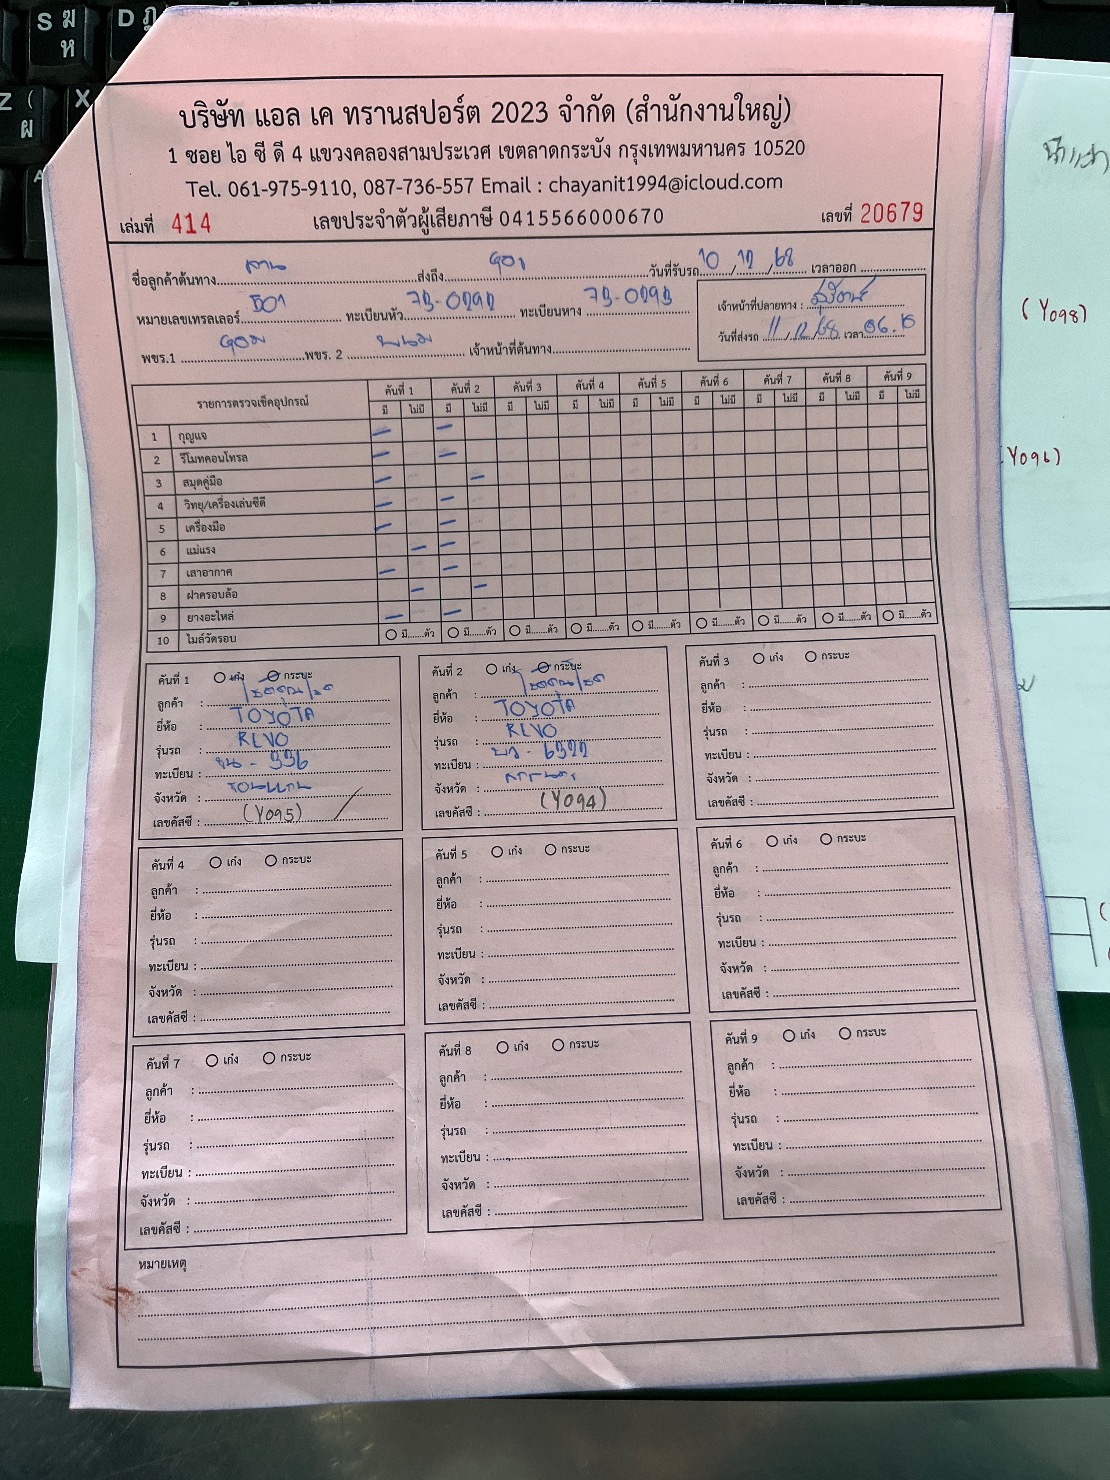 บริษัท แอล เค ทรานสปอร์ต 2023 จำกัด (สำนักงานใหญ่)
1 ซอย ไอ ซี ดี 4 แขวงคลองสามประเวศ เขตลาดกระบัง กรุงเทพมหานคร 10520
Tel. 061-975-9110, 087-736-557 Email : chayanit1994@icloud.com
เล่มที่ 414 เลขประจำตัวผู้เสียภาษี 0415566000670 เลขที่ 20679
ชื่อลูกค้าต้นทาง ส่งถึง วันที่รับรถ 10 / 12 / 68 เวลาออก
หมายเลขเทรลเลอร์ ทะเบียนหัว ทะเบียนหาง เจ้าหน้าที่ปลายทาง :
พขร.1 พขร. 2 พนม เจ้าหน้าที่ต้นทาง วันที่ส่งรถ 11 / 12 / 68 เวลา 06.15
รายการตรวจเช็คอุปกรณ์ คันที่ 1 คันที่ 2 คันที่ 3 คันที่ 4 คันที่ 5 คันที่ 6 คันที่ 7 คันที่ 8 คันที่ 9
มี ไม่มี มี ไม่มี มี ไม่มี มี ไม่มี มี ไม่มี มี ไม่มี มี ไม่มี มี ไม่มี มี ไม่มี
1 กุญแจ
2 รีโมทคอนโทรล
3 สมุดคู่มือ
4 วิทยุ/เครื่องเล่นซีดี
5 เครื่องมือ
6 แม่แรง
7 เสาอากาศ
8 ฝาครอบล้อ
9 ยางอะไหล่
10 ไมล์วัดรอบ มี......ตัว มี......ตัว มี......ตัว มี......ตัว มี......ตัว มี......ตัว มี......ตัว มี......ตัว มี......ตัว
คันที่ 1 เก๋ง กระบะ
ลูกค้า :
ยี่ห้อ : TOYOTA
รุ่นรถ : REVO
ทะเบียน :
จังหวัด : ขอนแก่น
เลขคัสซี : (Y095)
คันที่ 2 เก๋ง กระบะ
ลูกค้า :
ยี่ห้อ : TOYOTA
รุ่นรถ : REVO
ทะเบียน :
จังหวัด : สกลนคร
เลขคัสซี : (Y094)
คันที่ 3 เก๋ง กระบะ
ลูกค้า :
ยี่ห้อ :
รุ่นรถ :
ทะเบียน :
จังหวัด :
เลขคัสซี :
คันที่ 4 เก๋ง กระบะ
ลูกค้า :
ยี่ห้อ :
รุ่นรถ :
ทะเบียน :
จังหวัด :
เลขคัสซี :
คันที่ 5 เก๋ง กระบะ
ลูกค้า :
ยี่ห้อ :
รุ่นรถ :
ทะเบียน :
จังหวัด :
เลขคัสซี :
คันที่ 6 เก๋ง กระบะ
ลูกค้า :
ยี่ห้อ :
รุ่นรถ :
ทะเบียน :
จังหวัด :
เลขคัสซี :
คันที่ 7 เก๋ง กระบะ
ลูกค้า :
ยี่ห้อ :
รุ่นรถ :
ทะเบียน :
จังหวัด :
เลขคัสซี :
คันที่ 8 เก๋ง กระบะ
ลูกค้า :
ยี่ห้อ :
รุ่นรถ :
ทะเบียน :
จังหวัด :
เลขคัสซี :
คันที่ 9 เก๋ง กระบะ
ลูกค้า :
ยี่ห้อ :
รุ่นรถ :
ทะเบียน :
จังหวัด :
เลขคัสซี :
หมายเหตุ
(Y098)
(Y096)
S ฆ ห
D
Z ( ผ
X
A